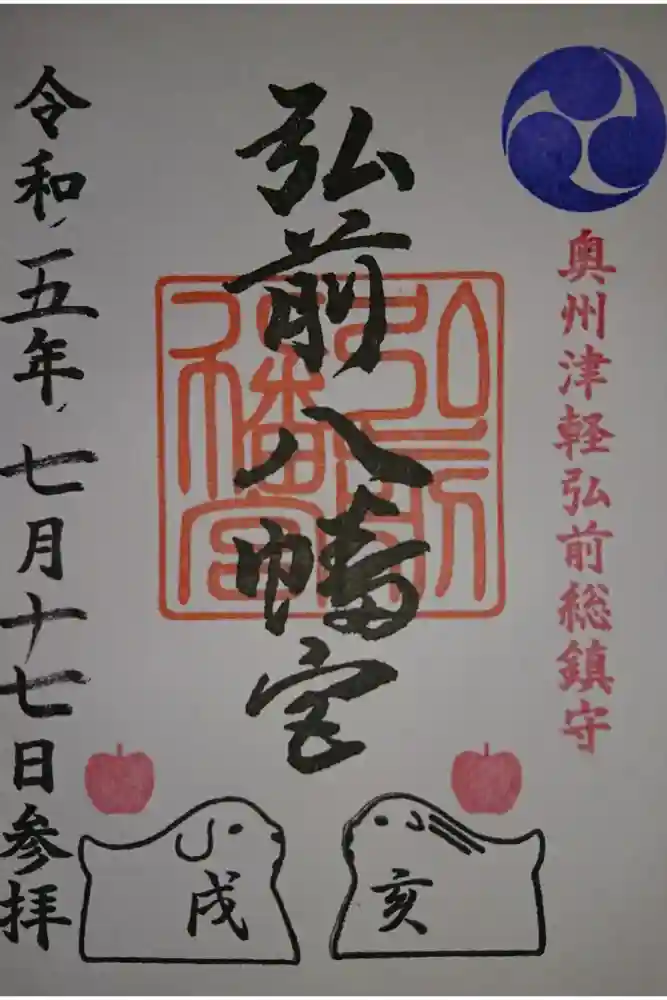 奥州津軽弘前総鎮守
弘前八幡宮
弘前八幡宮
令和五年七月十七日参拝
亥
戌